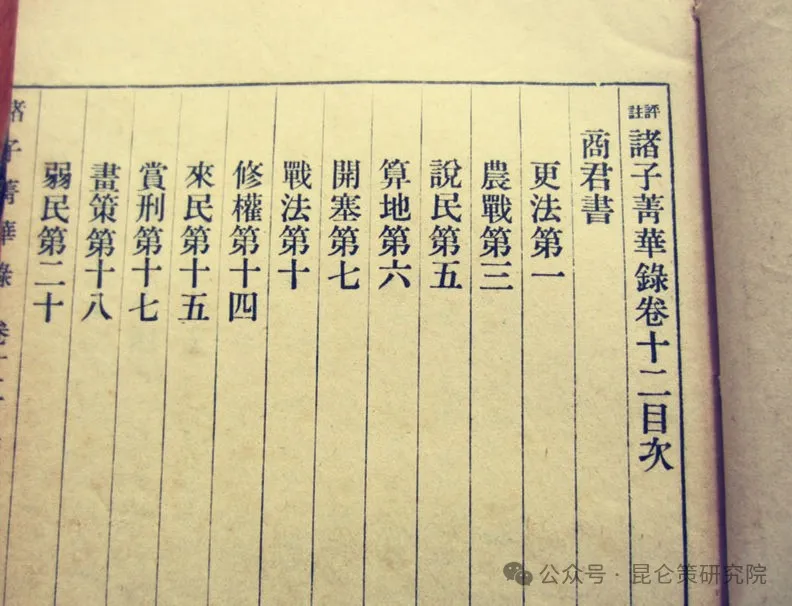 評註諸子菁華錄卷十二目次
商君書
更法第一
農戰第三
說民第五
算地第六
開塞第七
戰法第十
修權第十四
來民第十五
賞刑第十七
畫策第十八
弱民第二十
諸子菁華錄 卷十二
公众号·昆仑策研究院